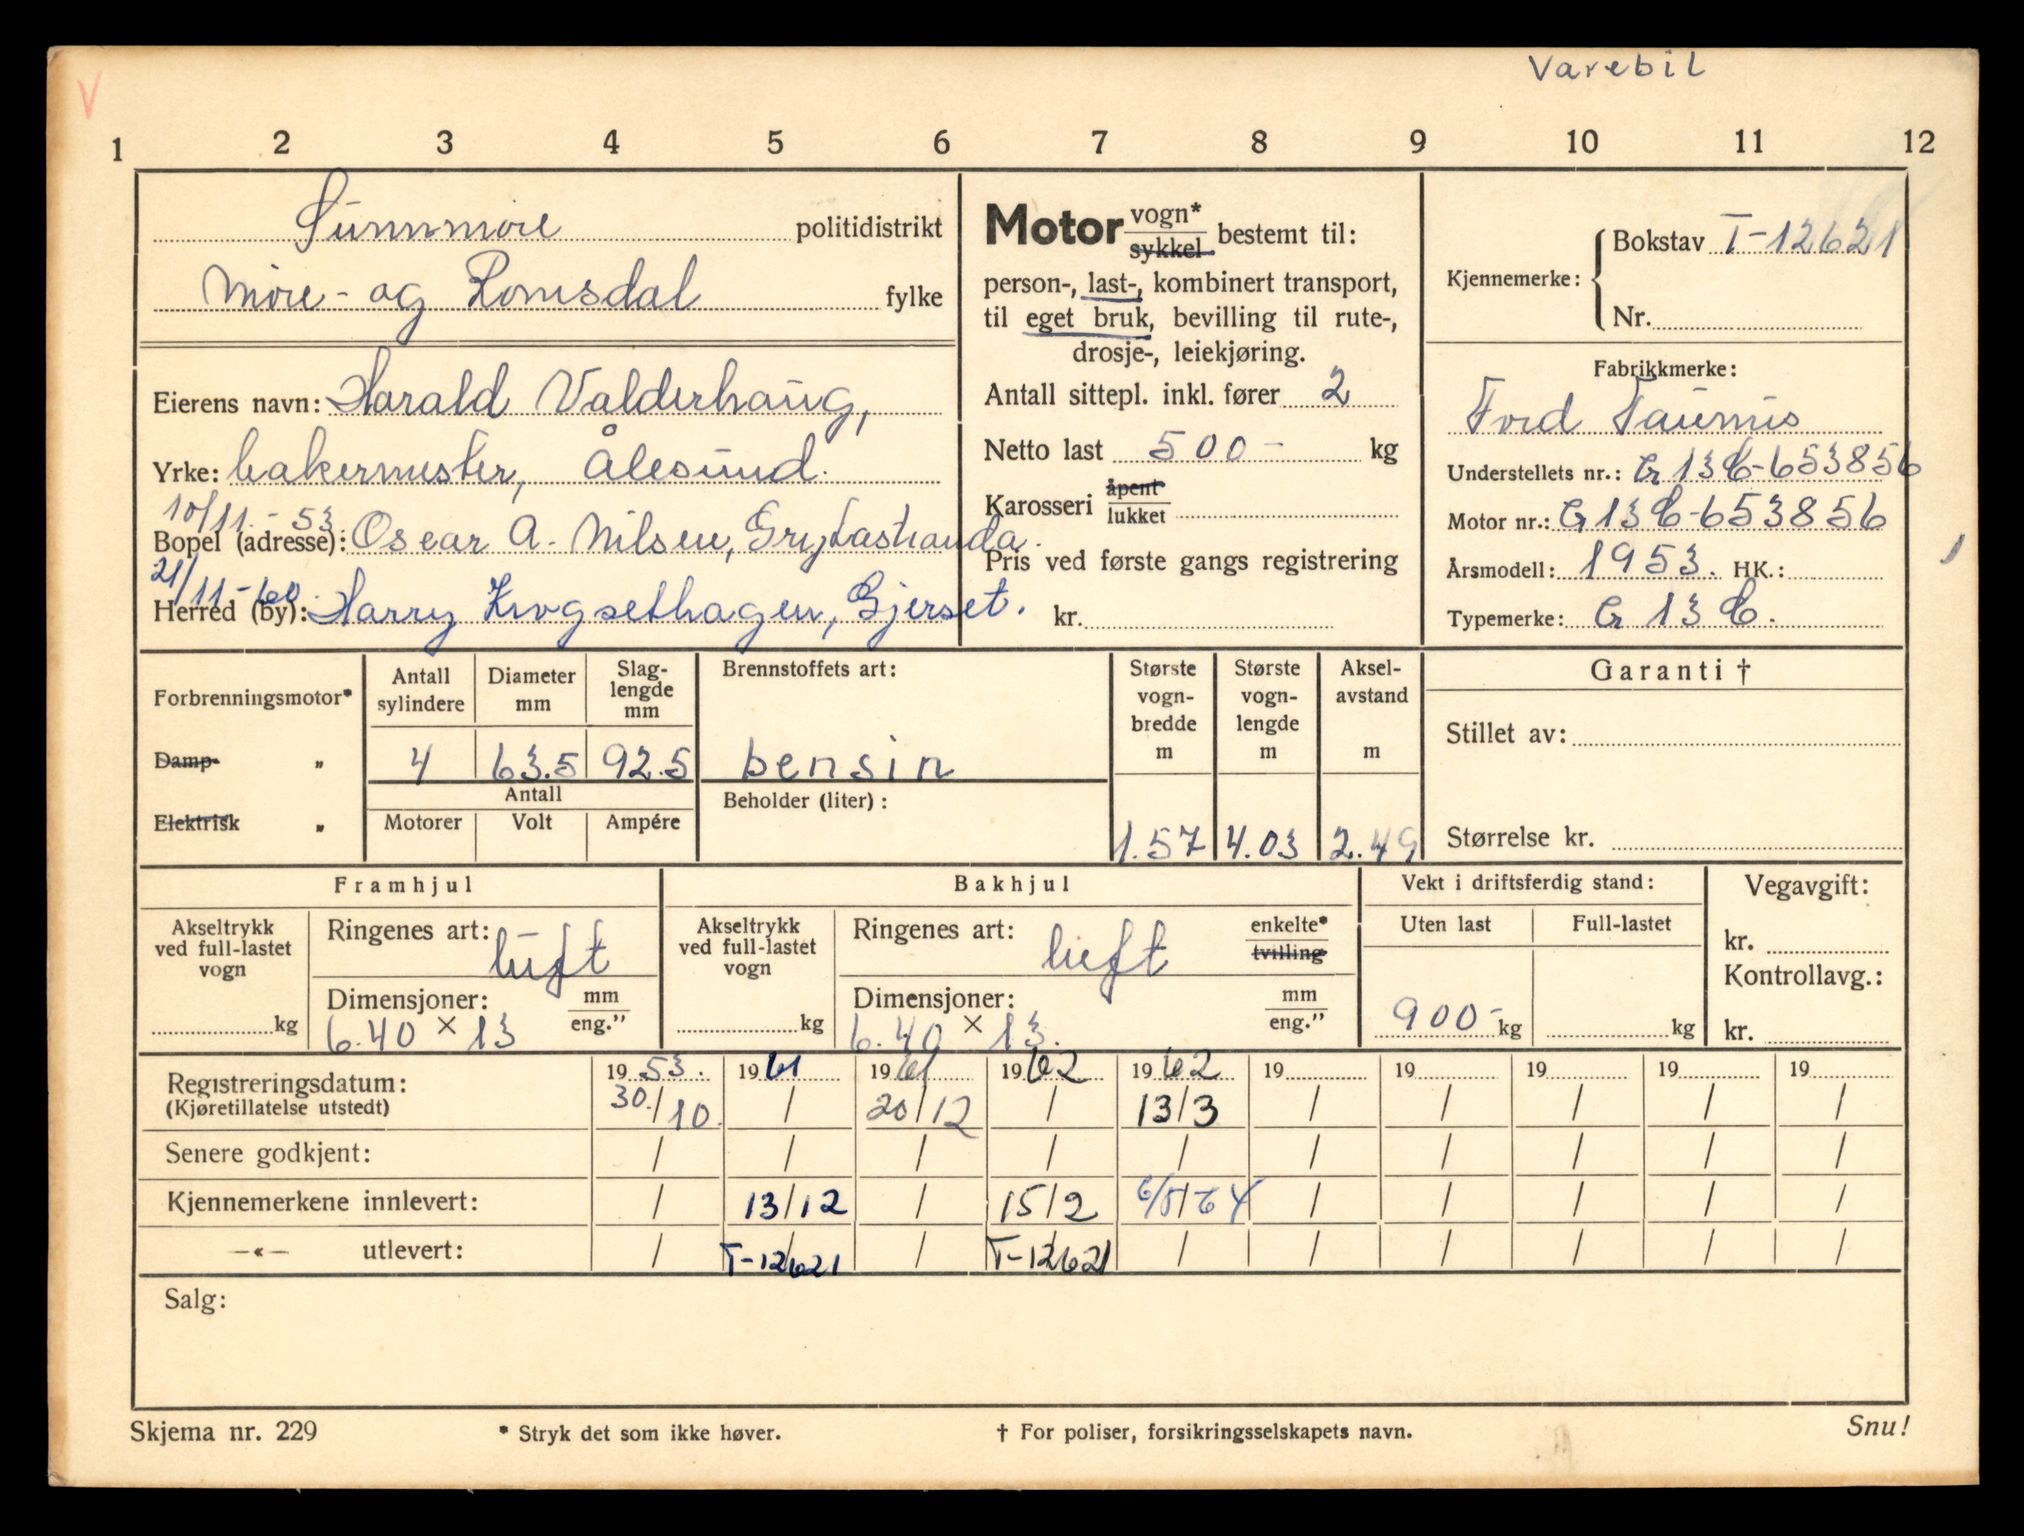 Varebil
V
1 2 3 4 5 6 7 8 9 10 11 12
Sunnmøre politidistrikt
Møre- og Romsdal fylke
Eierens navn: Harald Valderhaug,
Yrke: bakermester, Ålesund.
10/11.-53
Bopel (adresse): Oscar A. Nilsen, Grytastranda.
21/11-60.
Herred (by): Harry Krogsethagen, Gjerset.
Motor vogn* sykkel bestemt til:
person-, last-, kombinert transport,
til eget bruk, bevilling til rute-,
drosje-, leiekjøring.
Antall sittepl. inkl. fører 2
Netto last 500- kg
Karosseri åpent lukket
Pris ved første gangs registrering
kr.
Kjennemerke: Bokstav T-12621
Nr.
Fabrikkmerke:
Ford Taunus
Understellets nr.: G13C-653856
Motor nr.: G13C-653856
Årsmodell: 1953. HK.:
Typemerke: G 13 C.
Forbrenningsmotor*
Damp- „
Elektrisk „
Antall sylindere Diameter mm Slag-lengde mm
4 63.5 92.5
Antall
Motorer Volt Ampére
Brennstoffets art:
bensin
Beholder (liter):
Største vogn-bredde m Største vogn-lengde m Aksel-avstand m
1.57 4.03 2.49
Garanti †
Stillet av:
Størrelse kr.
Framhjul
Akseltrykk ved full-lastet vogn
kg
Ringenes art: luft
Dimensjoner: mm eng.”
6.40 × 13
Bakhjul
Akseltrykk ved full-lastet vogn
kg
Ringenes art: luft enkelte* tvilling
Dimensjoner: mm eng.”
6.40 × 13.
Vekt i driftsferdig stand:
Uten last Full-lastet
900- kg kg
Vegavgift:
kr.
Kontrollavg.:
kr.
Registreringsdatum: 1953. 1961 1961 1962 1962 19 19 19 19 19
(Kjøretillatelse utstedt) 30./10. / 20/12 / 13/3 / / / / /
Senere godkjent: / / / / / / / / / /
Kjennemerkene innlevert: / 13/12 / 15/2 6/8/-64 / / / / /
—«— utlevert: / T-12621 / T-12621 / / / / / /
Salg:
Skjema nr. 229 * Stryk det som ikke høver. † For poliser, forsikringsselskapets navn. Snu!